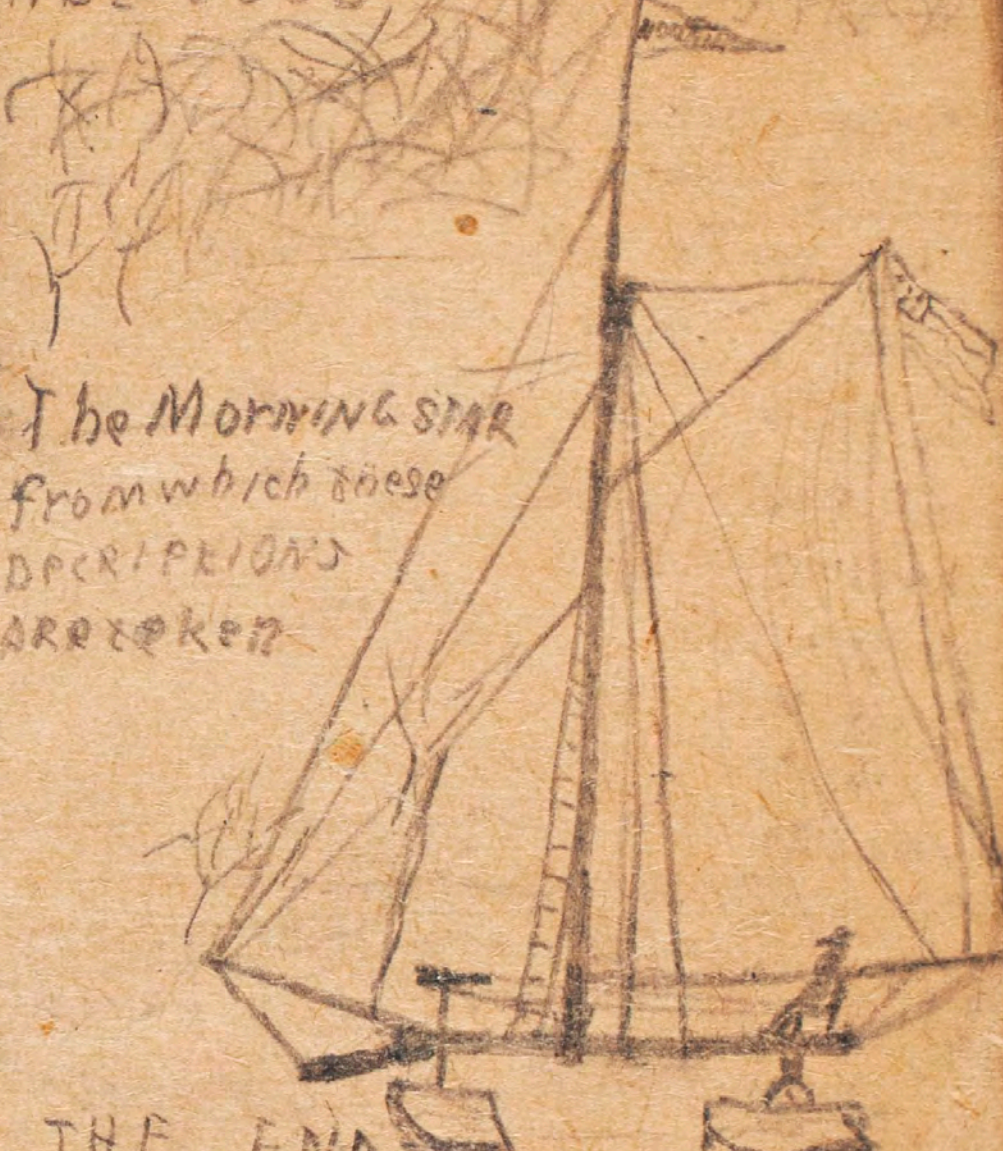 The MorNING STAR
from which these
DeCRIPtIONS
ARe teken
THE END